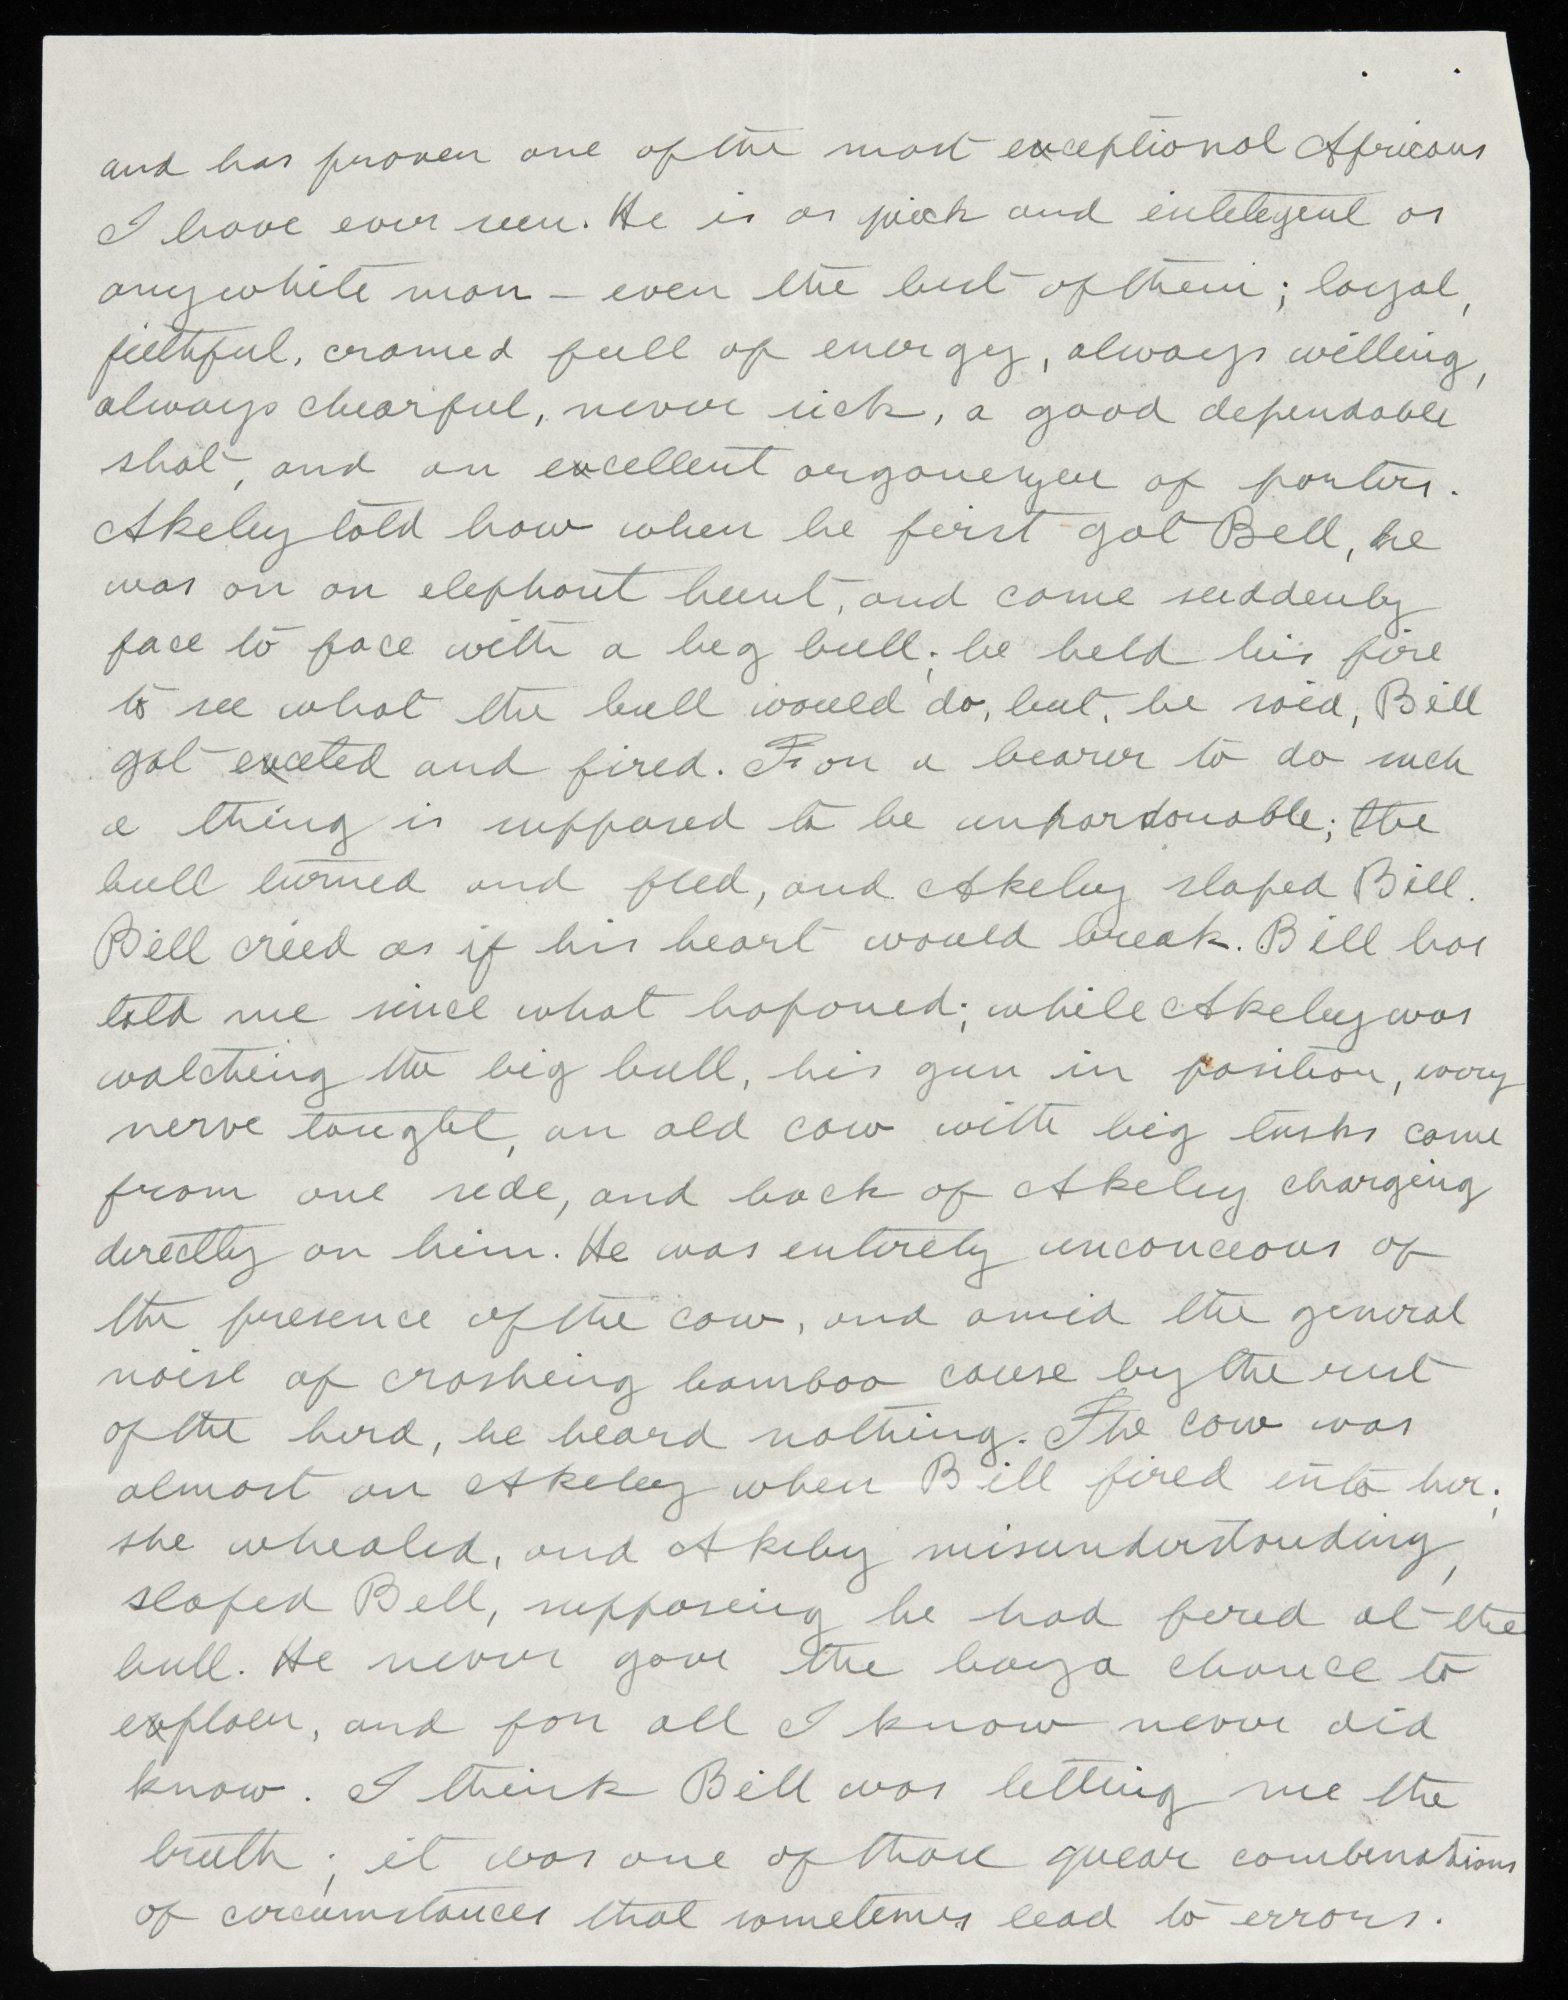 and has proven one of the most exceptional Africans
I have ever seen. He is as quick and intelegent as
any white man – even the best of them; loyal,
faithful, cramed full of energy, always willing,
always chearful, never sick, a good dependable
shot, and an excellent organeizer of porters.
Akeley told how when he first got Bill, he
was on an elephant hunt, and came suddenly
face to face with a big bull; he held his fire
to see what the bull would do, but, he said, Bill
got exceted and fired. For a bearer to do such
a thing is supposed to be unpardonable; the
bull turned and fled, and Akeley slaped Bill.
Bill cried as if his heart would break. Bill has
told me since what hapened; while Akeley was
watching the big bull, his gun in position, every
nerve taught, an old cow with big tusks came
from one side, and back of Akeley charging
directly on him. He was entirely unconceous of
the presence of the cow, and amid the general
noise of crashing bamboo cause by the rest
of the herd, he heard nothing. The cow was
almost on Akeley when Bill fired into her;
she whealed, and Akeley misunderstanding,
slaped Bill, supposing he had fired at the
bull. He never gave the boy a chance to
explaen, and for all I know never did
know. I think Bill was telling me the
truth; it was one of those quear combenations
of circumstances that sometimes lead to errors.